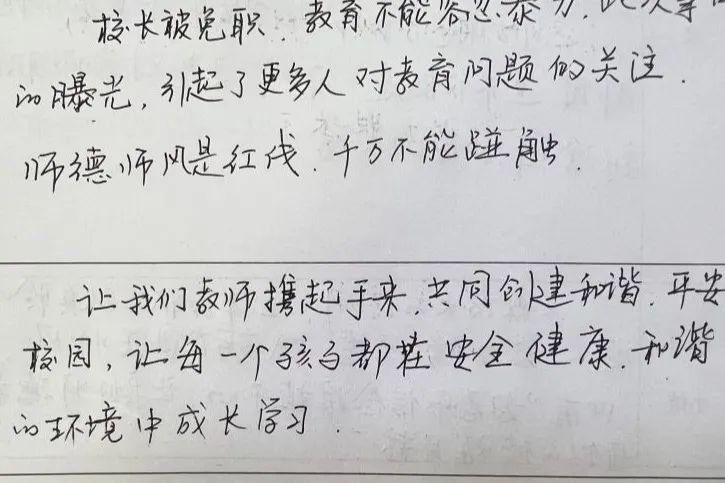 校长被免职.教育不能容忍暴力.此次事
的曝光,引起了更多人对教育问题的关注.
师德师风是红线.千万不能踫触.
让我们教师携起手来.共同创建和谐.平安
校园,让每一个孩子都在安全健康.和谐
的环境中成长学习.